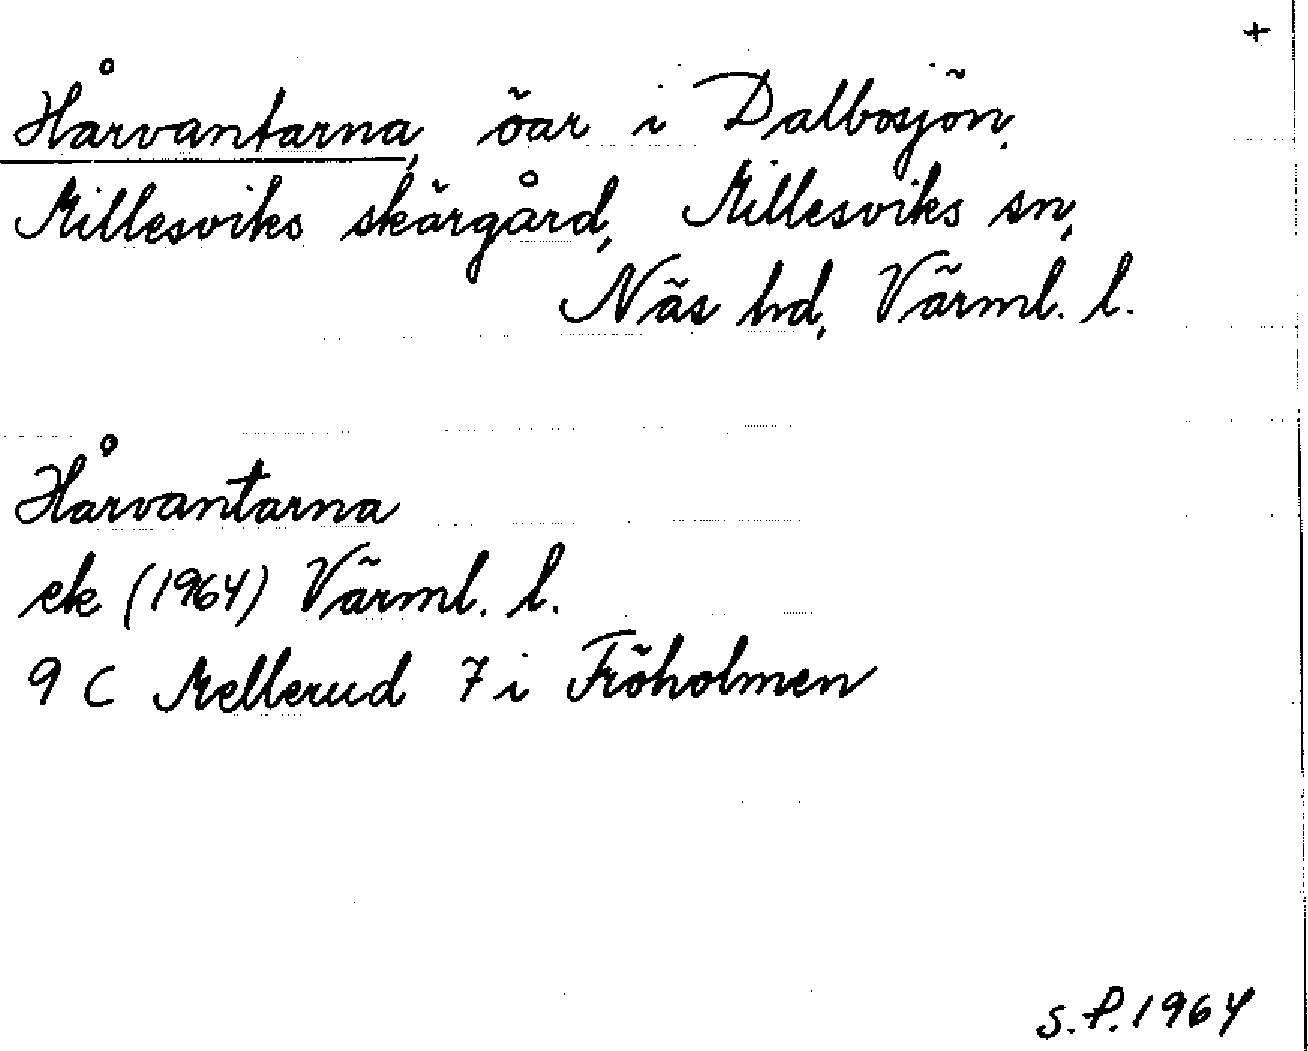 +
Hårvantarna, öar i Dalbosjön,
Millesviks skärgård, Millesviks sn,
Näs hd, Värml. l.
Hårvantarna
ek (1964) Värml. l.
9 C Mellerud 7 i Fröholmen
S.P. 1964